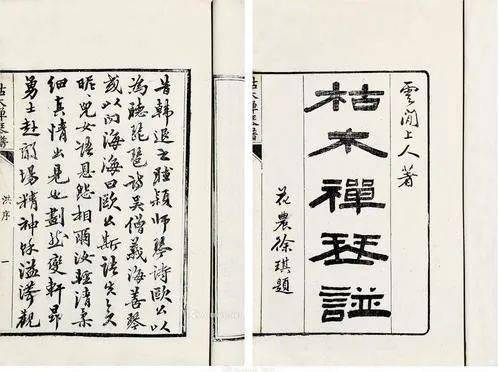 雲閒上人著
枯木禪琴譜
花農徐琪題
昔韓退之聽穎師琴詩歐公以
為聽琵琶詩吳僧義海善琴
或以問海海曰歐公斯語
昵昵兒女語恩怨相爾汝輕清柔
細真情出見也劃然變軒昂
勇士赴敵場精神餘溢竦觀
枯木禪琴譜
洪序
一